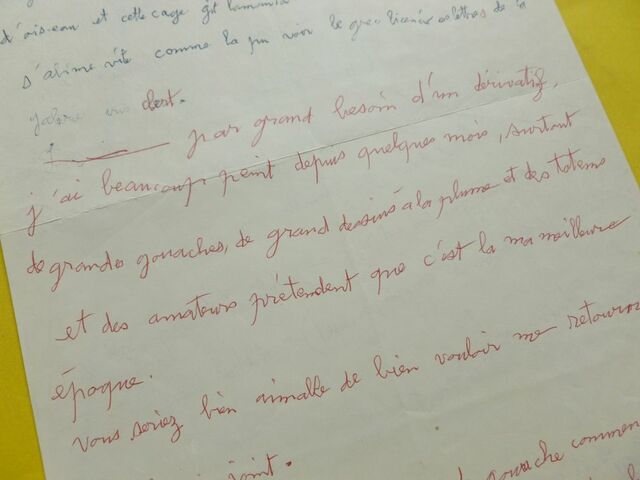 d'oiseau et cette cage gît
s'abîme vite comme l'a pu voir le grec licencié ès lettres de la
dest.
par grand besoin d'un dérivatif,
j'ai beaucoup peint depuis quelques mois, surtout
de grandes gouaches, de grand dessins à la plume et des totems
et des amateurs prétendent que c'est la ma meilleure
époque.
vous seriez bien aimable de bien vouloir me retourner
joint.
gouache commen